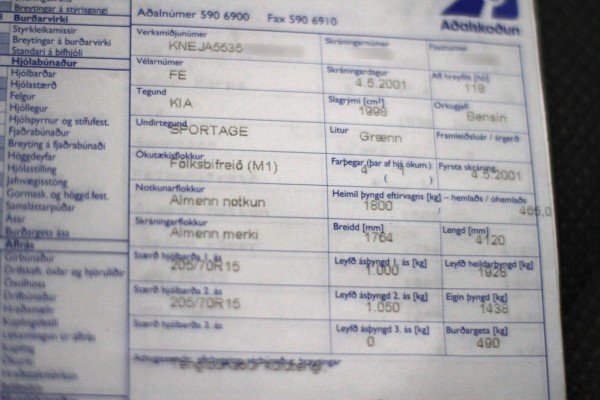 Breytingar á styrisgangi
Burðarvirki
Styrkleikamissir
Breytingar á burðarvirki
Standari á bifhjóli
Hjólabúnaður
Hjólbarðar
Hjólastærð
Felgur
Hjóllegur
Hjólspyrnur og stífufest.
Fjaðrabúnaður
Breyting á fjaðrabúnaði
Höggdeyfar
Hjólastilling
Jafnvægisstöng
Gormask. og höggd.fest.
Samsláttarpúðar
Ásar
Burðargeta ása
Aflrás
Gírbúnaður
Drifskaft, öxlar og hjöruliðir
Driflæsing
Drifbúnaður
Hraðamælir
Kúpling
Aðalnúmer 590 6900 Fax 590 6910
Aðalskoðun
Verksmiðjunúmer
KNEJA5535
Skráningarnúmer
Fastnúmer
Vélarnúmer
FE
Skráningardagur
4.5.2001
Afl hreyfils [hö]
118
Tegund
KIA
Slagrými [cm³]
1998
Orkugjafi
Bensín
Undirtegund
SPORTAGE
Litur
Grænn
Framleiðsluár / árgerð
Ökutækisflokkur
Fólksbifreið (M1)
Farþegar (þar af hjá ökum.)
4 1
( )
Fyrsta skráning
4.5.2001
Notkunarflokkur
Almenn notkun
Heimil þyngd eftirvagns [kg] – hemlaðs / óhemlaðs
1800 / 465,0
Skráningarflokkur
Almenn merki
Breidd [mm]
1764
Lengd [mm]
4120
Stærð hjólbarða 1. ás
205/70R15
Leyfð ásþyngd 1. ás [kg]
1.000
Leyfð heildarþyngd [kg]
1928
Stærð hjólbarða 2. ás
205/70R15
Leyfð ásþyngd 2. ás [kg]
1.050
Eigin þyngd [kg]
1438
Stærð hjólbarða 3. ás
Leyfð ásþyngd 3. ás [kg]
0
Burðargeta [kg]
490